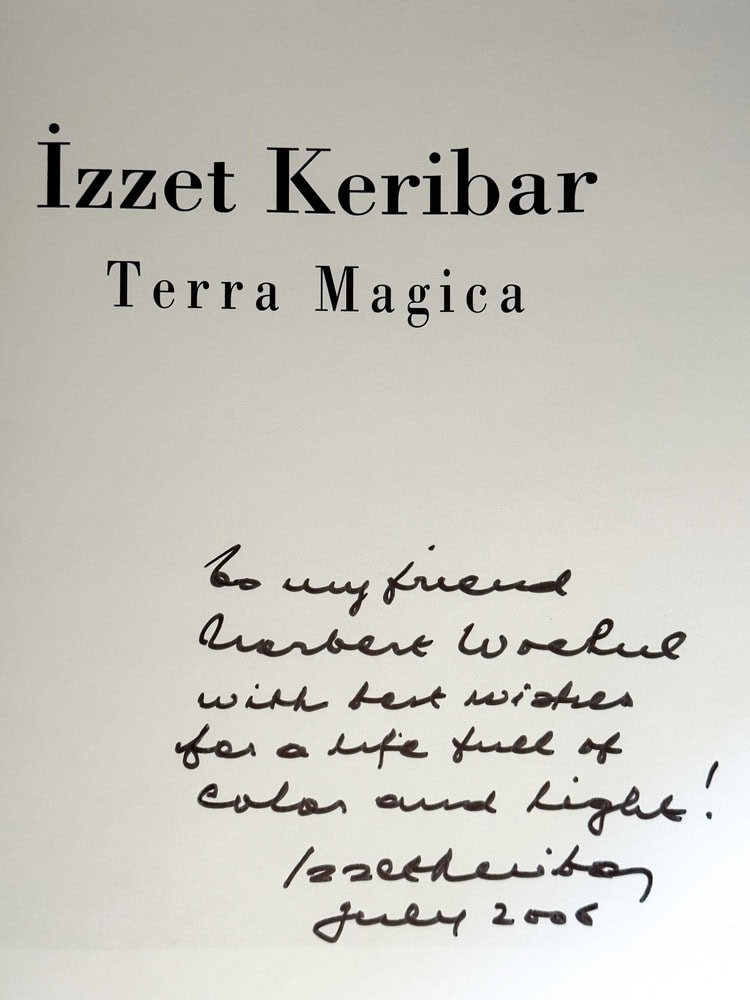 İzzet Keribar
Terra Magica
To my friend
Norbert Woehnl
with best wishes
for a life full of
color and light!
Izzet Keribar
July 2006